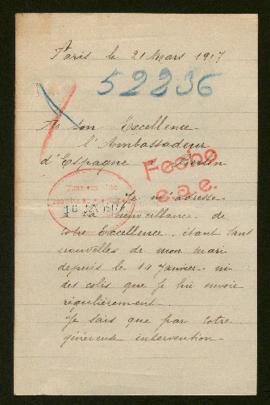 Paris le 21 Mars 1917
52236
A son Excellence
l'Ambassadeur
d'Espagne à Berlin
Fecho
e.a.e.
Je m'adresse
à la bienveillance de
votre Excellence, étant sans
nouvelles de mon mari
depuis le 19 Janvier, ni
des colis que je lui envoie
régulièrement.
Je sais que par votre
généreuse intervention